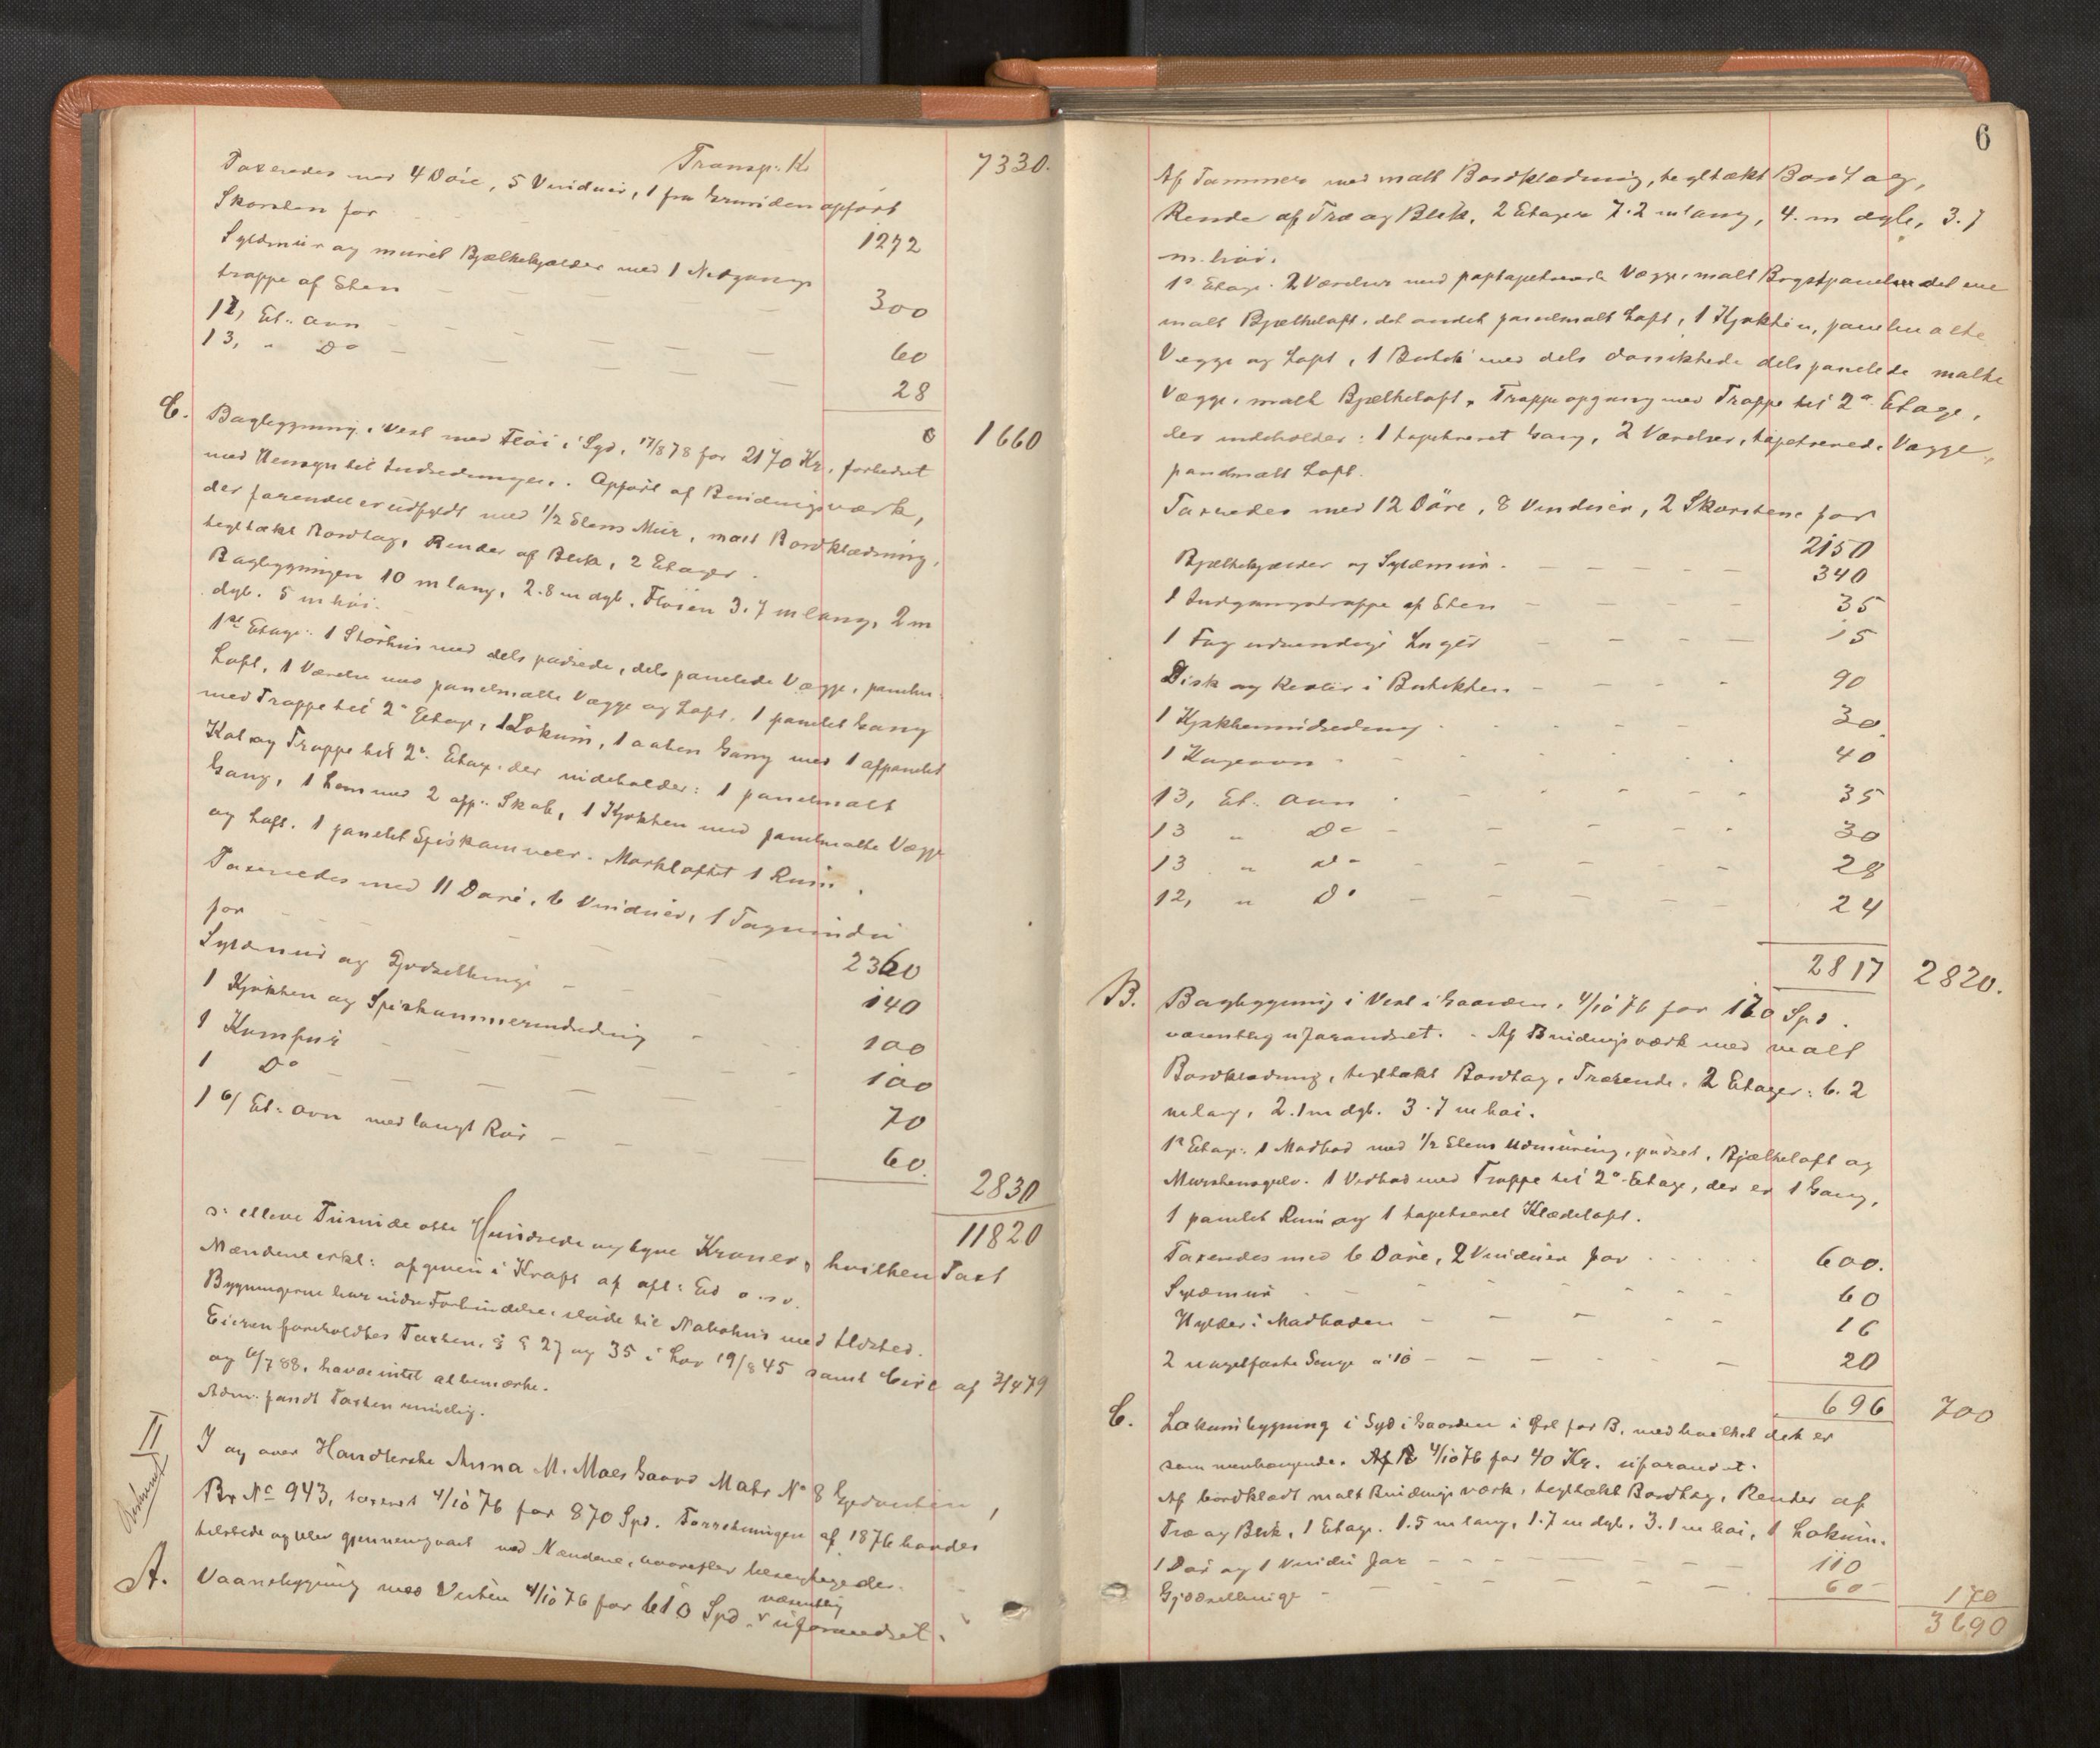 Transp. Kr. 7330.
Taxeredes med 4 Döre, 5 Vinduer, 1 fra Grunden opført
Skorsten for 1272
Syldmur og muret Bjælkekjælder med 1 Nedgangs
trappe af Sten — — — 300
1 2, Et: Ovn — — — 60
1 3, " Do — — — 28
1660
C. Bagbygning i Vest med Flöi i Syd, 17/8 78 for 2170 Kr, forbedret
med Hensyn til Indredningen. Opført af Bindingsværk,
der forendel er udfyldt med 1/2 Stens Mur, malt Bordklædning,
tegltækt Bordtag, Render af Blik, 2 Etager.
Bagbygningen 10 m lang, 2.8 m dyb, Flöien 3.7 m lang, 2 m
dyb. 5 m höi.
1st Etage: 1 Störhus med dels pudsede, dels panelede Vægge, panelm.
Loft, 1 Værelse med panelmalte Vægge og Loft, 1 panelet Gang
med Trappe til 2n Etage, 1 Lokum, 1 aaben Gang med 1 afpanelet
Kot og Trappe til 2n Etage, der indeholder: 1 panelmalt
Gang, 1 Lem med 2 opp: Skab, 1 Kjøkken med panelmalte Vægge
og Loft. 1 panelet Spiskammer. Mørkloftet 1 Rum.
Taxeredes med 11 Döre, 6 Vinduer, 1 Tagvindu
for — — — 2360
Syldmur og Gjödselbinge — — 140
1 Kjökken og Spiskammerindredning — 100
1 Komfur — — — 100
1 Do — — — 70
1 6/ Et: Ovn med langt Rör — — — 60.
2830
11820
o: elleve Tusinde otte Hundrede og tyve Kroner, hvilken Taxt
Mændene erkl: afgiven i Kraft af afl: Ed o.s.v.
Bygningerne har uden Forbindelse, stöde til Nabohus med Ildsted.
Eieren foreholdtes Taxten, § § 27 og 35 i Lov 19/8 45 samt Circ af 3/4 79
og 6/7 88, havde intet at bemærke.
Adm: fandt Taxten rimelig.
II I og over Handlerske Anna M. Moes Gaard Matr No 8
Br No 943, taxeret 4/10 76 for 870 Spd. Forretningen af 1876 havdes
tilstede og blev gjennemgaaet med Mændene, hvorefter besigtigedes.
A. Vaaningsbygning mod Vesten 4/10 76 for 610 Spd. væsentlig uforandret.
6
Af Tømmer med malt Bordklædning, tegltækt Bordtag,
Render af Træ og Blik, 2 Etager 7.2 m lang, 4. m dyb, 3.7
m. höi.
1s Etage: 2 Værelser med paptapetserede Vægge, malt Brystpanel det ene
malt Bjælkeloft, det andet panelmalt Loft, 1 Kjøkken, panelmalte
Vægge og Loft, 1 Butik med dels panelede malte
Vægge, malt Bjælkeloft, Trappeopgang med Trappe til 2n Etage,
der indeholder: 1 tapetseret Gang, 2 Værelser, tapetserede Vægge,
panelmalt Loft.
Taxeredes med 12 Döre, 8 Vinduer, 2 Skorstene for
2150
Bjælkekjælder og Syldmur — — — 340
1 Indgangstrappe af Sten — — — 35
1 Fag udvendige Luger — — — 15
Disk og Reoler i Butikken — — — 90
1 Kjøkkenindredning — — — 30.
1 Kogeovn — — — 40
1 3, Et: Ovn — — — 35
1 3 " Do — — — 30
1 3 " Do — — — 28
1 2, " Do — — — 24
2817 2820.
B. Bagbygning i Vest i Gaarden, 4/10 76 for 160 Spd.
væsentlig uforandret. - Af Bindingsværk med malt
Bordklædning, tegltækt Bordtag, Trærende, 2 Etager: 6.2
m lang, 2.1 m dyb. 3.7 m høi.
1s Etage: 1 Madbod med 1/2 Stens Udmuring, pudset, Bjælkeloft og
Murstensgulv. 1 Vedbod med Trappe til 2n Etage, der er 1 Gang,
1 panelet Rum og 1 tapetseret Klædeloft.
Taxeredes med 6 Döre, 2 Vinduer for 600.
Syldmur — — — 60
Hylder i Madboden — — — 16
2 nagelfaste Senge a 10 — — — 20
696 700
C. Lokumbygning i Syd i Gaarden i Øst for B. med hvilket det er
sammenhængende. 4/10 76 for 40 Kr. uforandret.
Af bordklædt malt Bindingsværk, tegltækt Bordtag, Render af
Træ og Blik, 1 Etage. 1.5 m lang, 1.7 m dyb, 3.1 m høi, 1 Lokum.
1 Dör og 1 Vindu for — — — 110
Gjødselbinge — — — 60 170
3690